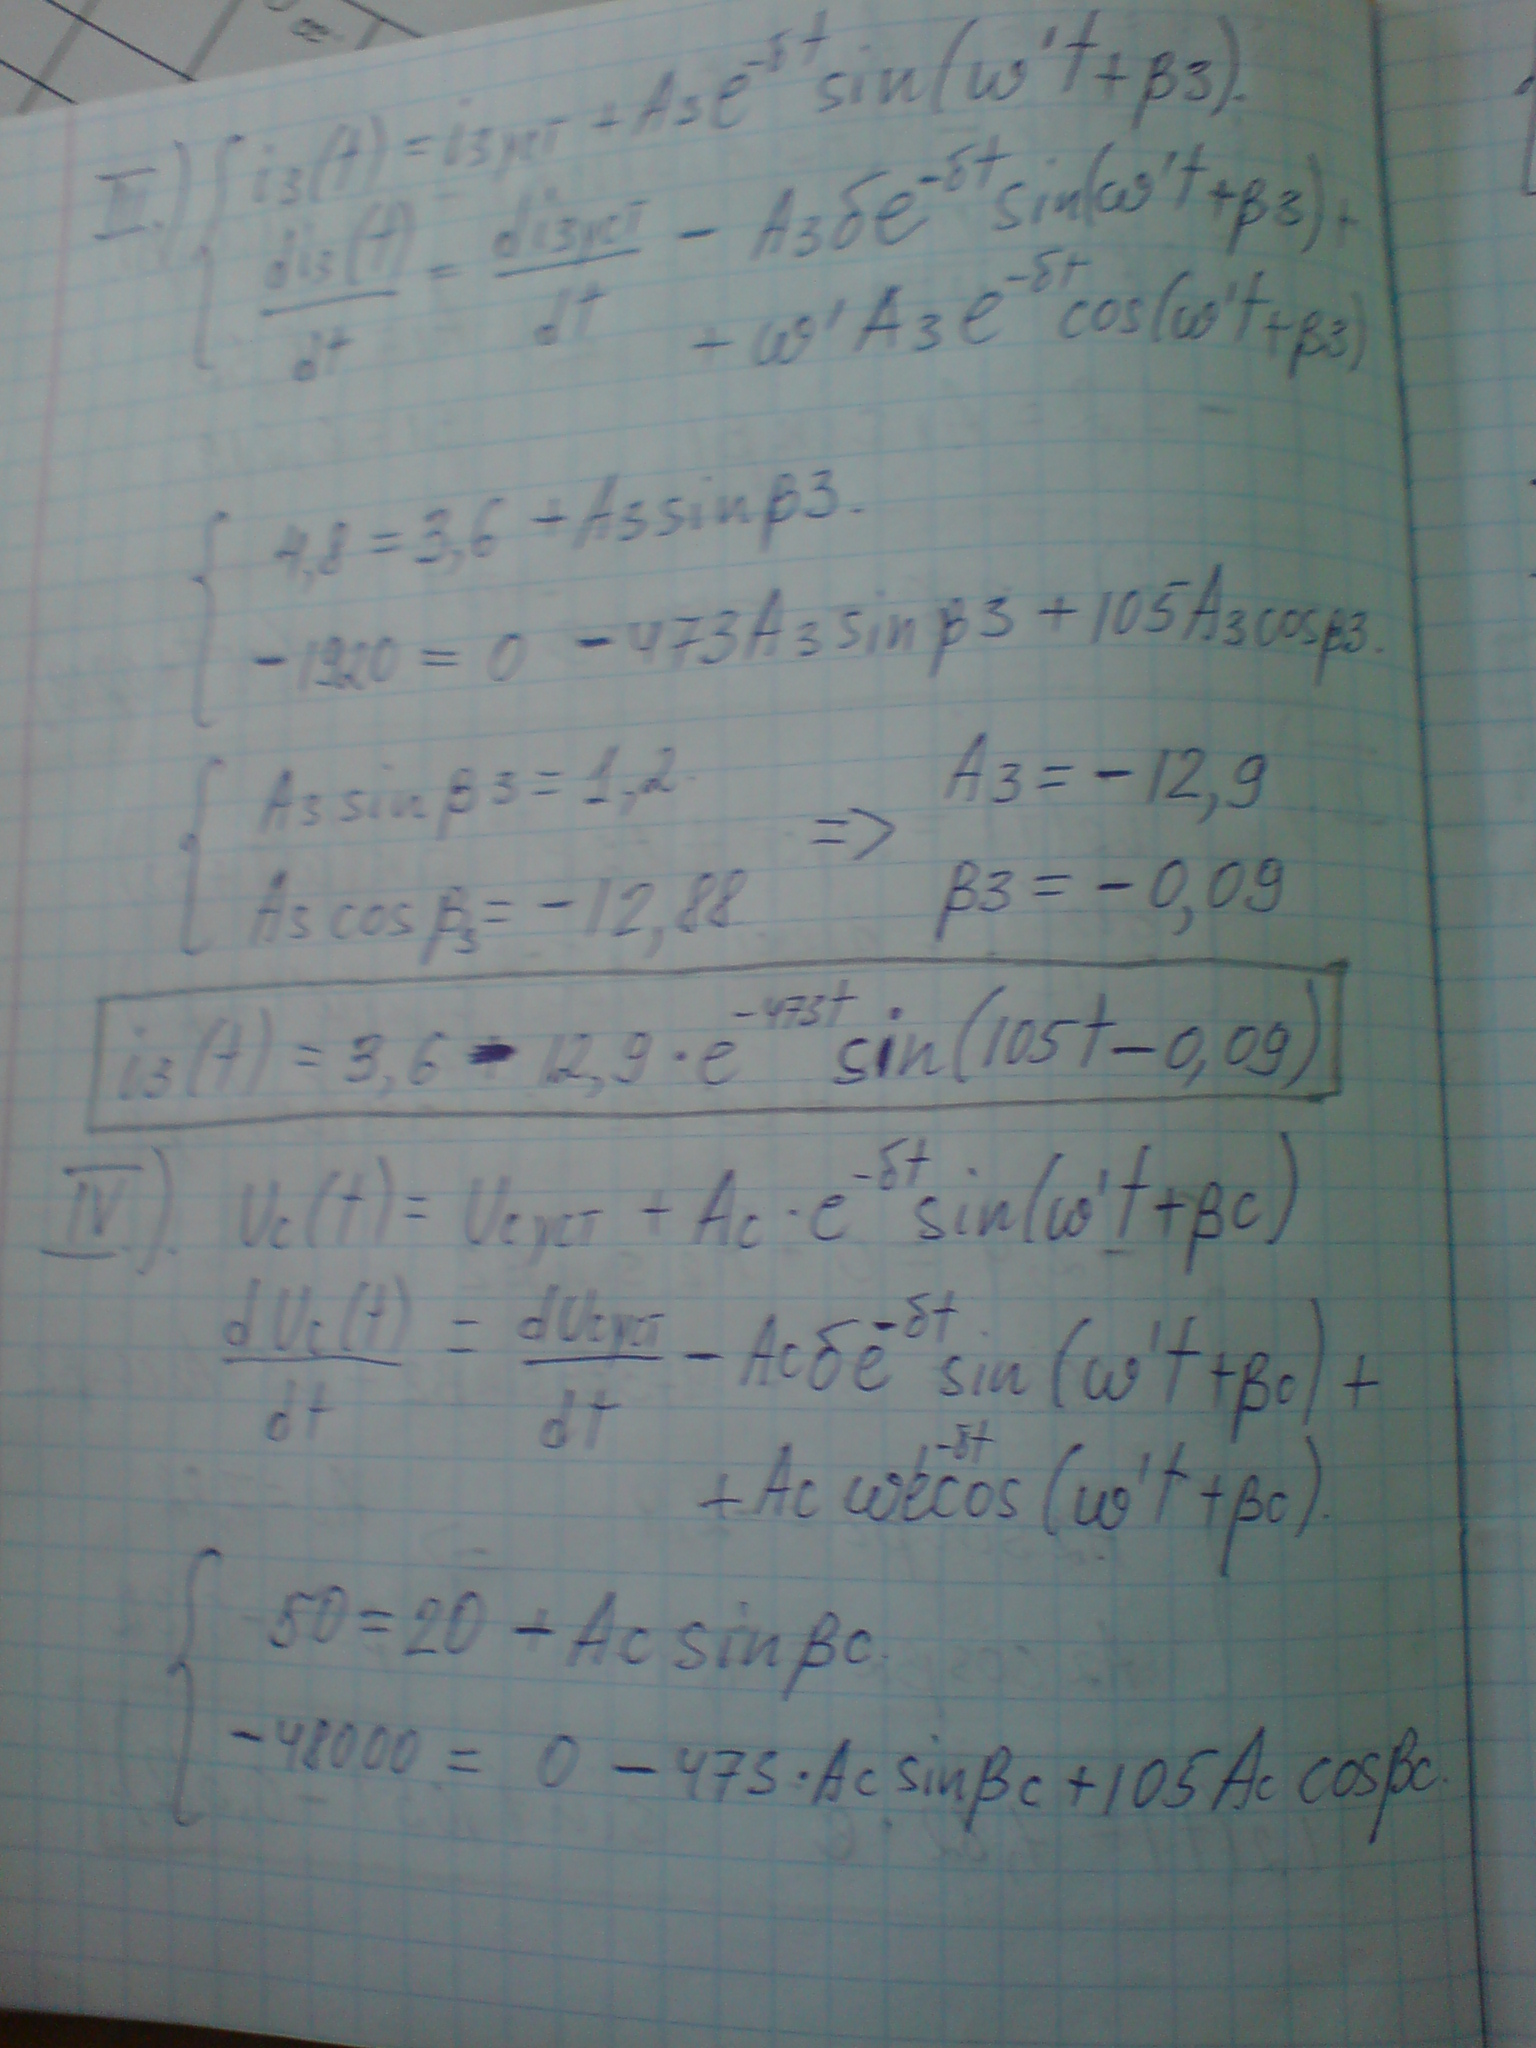 III.) i₃(t) = i₃уст + A₃e^(-δt) sin(ω't + β₃).
di₃(t)/dt = di₃уст/dt - A₃δe^(-δt) sin(ω't + β₃) +
+ ω'A₃e^(-δt) cos(ω't + β₃)
4,8 = 3,6 + A₃ sin β₃.
-1920 = 0 - 473A₃ sin β₃ + 105A₃ cos β₃.
A₃ sin β₃ = 1,2 => A₃ = -12,9
A₃ cos β₃ = -12,88 β₃ = -0,09
i₃(t) = 3,6 - 12,9 · e^(-473t) sin(105t - 0,09)
IV.). Uc(t) = Uc уст + Ac · e^(-δt) sin(ω't + βc)
dUc(t)/dt = dUc уст/dt - Acδe^(-δt) sin(ω't + βc) +
+ Ac ω'e^(-δt) cos(ω't + βc).
50 = 20 + Ac sin βc.
-48000 = 0 - 473 · Ac sin βc + 105 Ac cos βc.